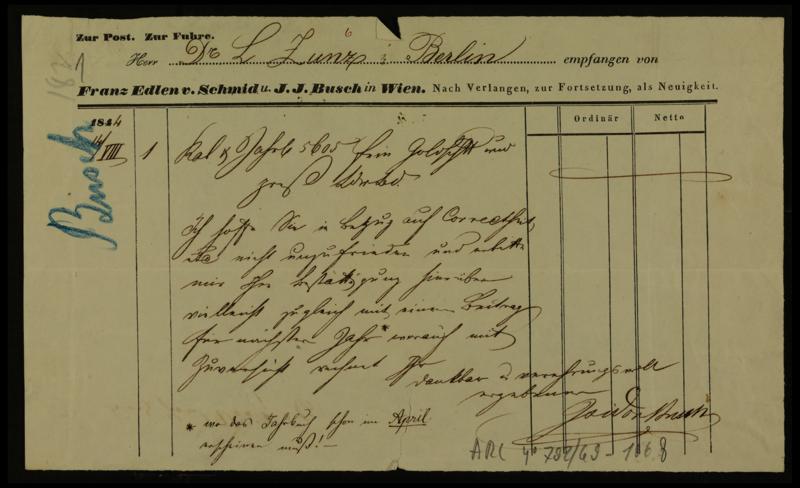 Zur Post. Zur Fuhre. 6
Herr Dr L Zunz Berlin empfangen von
Franz Edlen v. Schmid u. J. J. Busch in Wien. Nach Verlangen, zur Fortsetzung, als Neuigkeit.
Ordinär Netto
1844
14/VIII 1 Kal & Jahrb 5605 fein Goldschtt und
Ich hoffe Sie in Bezug auf Correctheit
etc nicht unzufrieden und erbitte
mir Ihre Bestätigung hierüber
vielleicht zugleich mit einem Beitrag
für nächstes Jahr * worauf mit
Zuversicht rechnet Ihr
dankbar u verehrungsvoll
ergebener
Isidor Busch
* wo das Jahrbuch schon im April
erscheinen muß! —
Busch
ARC 4° 792/